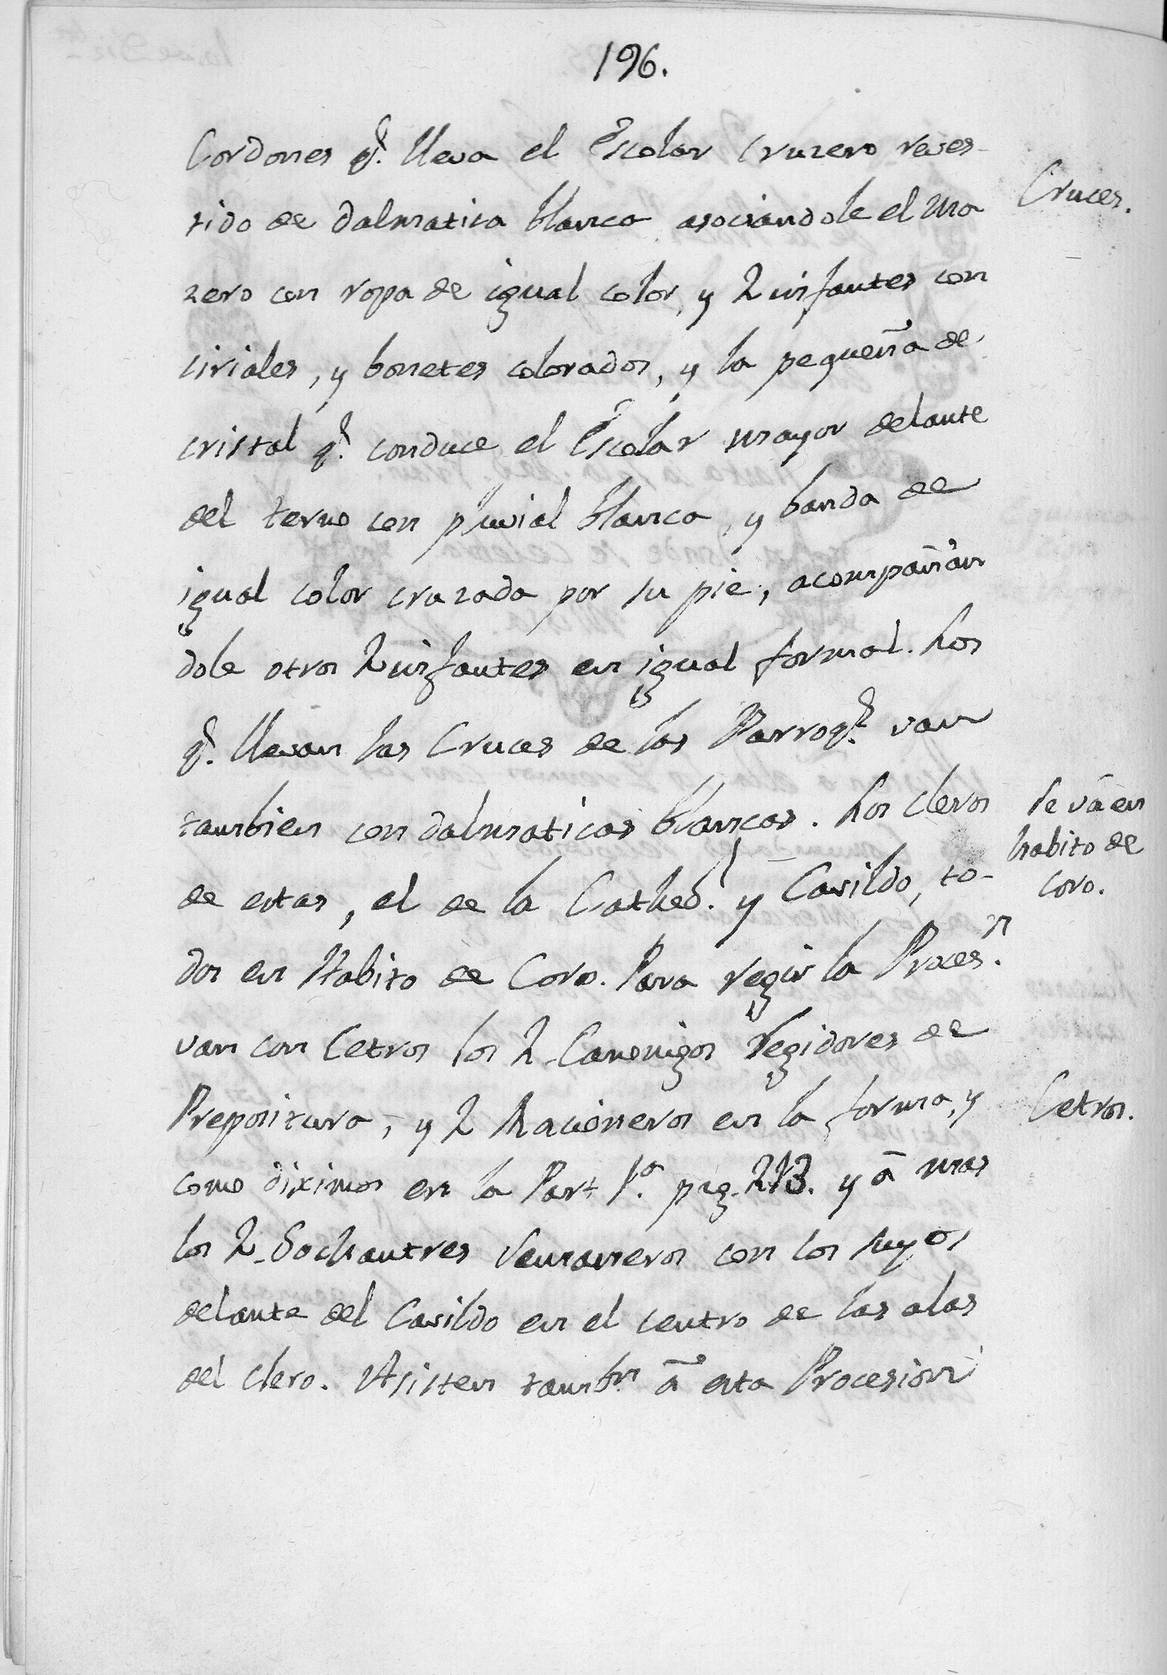 196.
Cordones q.e lleva el Escolar Cruzero reves-
tido de Dalmatica blanca asociandole el Ma
zero con ropa de igual color, y 2 infantes con
ciriales, y bonetes colorados, y la pequeña de
cristal q.e conduce el Escolar mayor delante
del terno con pluvial blanca, y banda de
igual color cruzada por su pie, acompañan
dole otros 2 infantes en igual forma. Los
q.e llevan las Cruces de las Parroq.s van
tambien con dalmaticas blancas. Los cleros
de estas, el de la Cathed.l y Cavildo, to-
dos en Habito de Coro. Para regir la Proces.n
van con Cetros los 2 Canonigos Regidores de
Prepositura, y 2 Racioneros en la forma, y
como diximos en la Part. 1.a pag. 213. y â mas
los 2 Sochantres Semaneros con los suyos
delante del Cavildo en el centro de las alas
del clero. Asisten tamb.n â esta Procesion
Cruces.
Se vá en
habito de
coro.
Cetros.